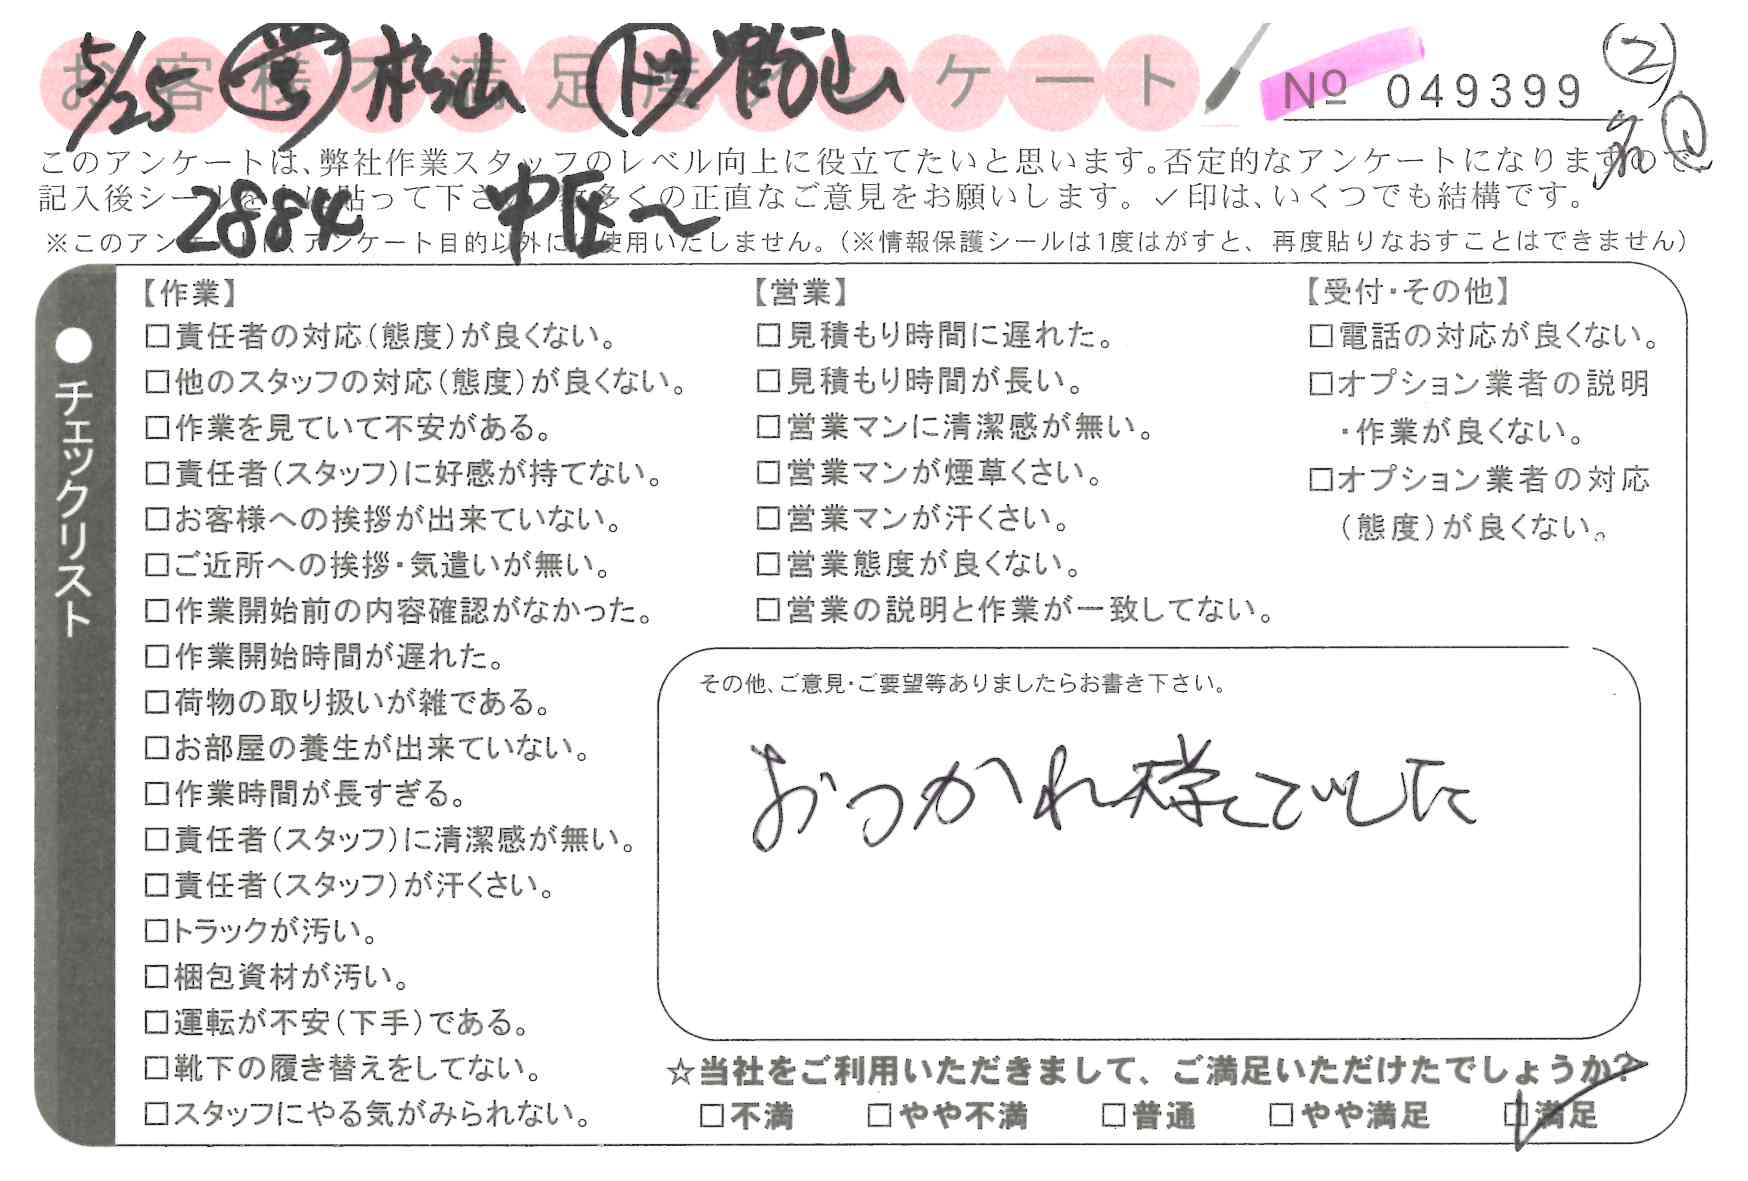 お客様不満足度アンケート
5/25 営 松山 ト
№ 049399
②
このアンケートは、弊社作業スタッフのレベル向上に役立てたいと思います。否定的なアンケートになりますので、
記入後シールを上に貼って下さい。数多くの正直なご意見をお願いします。✓印は、いくつでも結構です。
2884 中区〜
※このアンケートは、アンケート目的以外には使用いたしません。(※情報保護シールは1度はがすと、再度貼りなおすことはできません)
●チェックリスト
【作業】
□責任者の対応(態度)が良くない。
□他のスタッフの対応(態度)が良くない。
□作業を見ていて不安がある。
□責任者(スタッフ)に好感が持てない。
□お客様への挨拶が出来ていない。
□ご近所への挨拶・気遣いが無い。
□作業開始前の内容確認がなかった。
□作業開始時間が遅れた。
□荷物の取り扱いが雑である。
□お部屋の養生が出来ていない。
□作業時間が長すぎる。
□責任者(スタッフ)に清潔感が無い。
□責任者(スタッフ)が汗くさい。
□トラックが汚い。
□梱包資材が汚い。
□運転が不安(下手)である。
□靴下の履き替えをしてない。
□スタッフにやる気がみられない。
【営業】
□見積もり時間に遅れた。
□見積もり時間が長い。
□営業マンに清潔感が無い。
□営業マンが煙草くさい。
□営業マンが汗くさい。
□営業態度が良くない。
□営業の説明と作業が一致してない。
【受付・その他】
□電話の対応が良くない。
□オプション業者の説明
・作業が良くない。
□オプション業者の対応
(態度)が良くない。
その他、ご意見・ご要望等ありましたらお書き下さい。
おつかれ様でした
☆当社をご利用いただきまして、ご満足いただけたでしょうか?
□不満 □やや不満 □普通 □やや満足 ☑満足